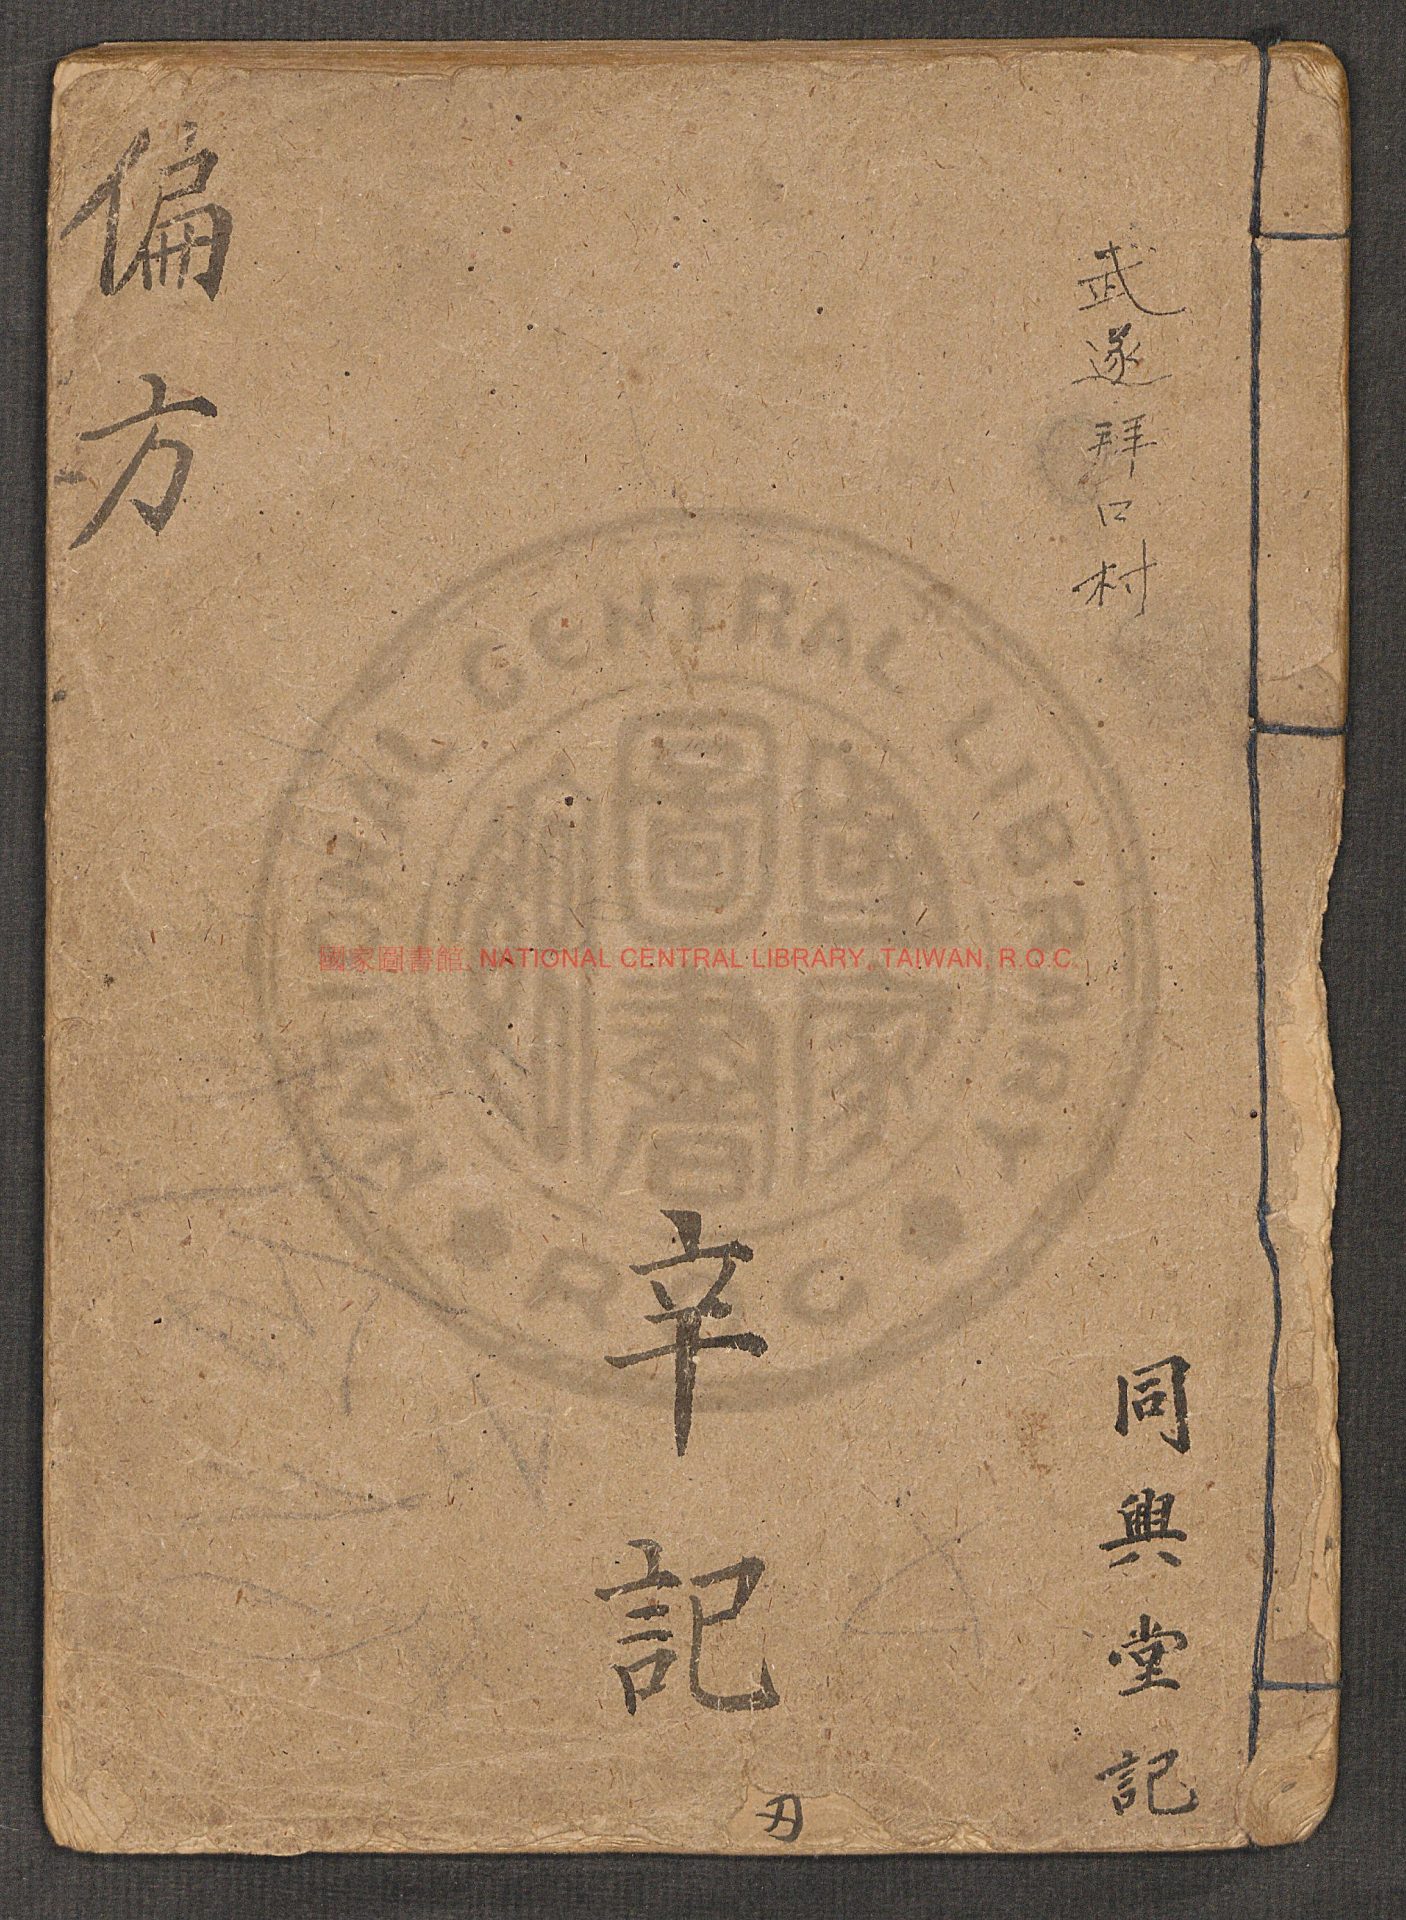 武遂拜口村
同興堂記
辛記
偏方
國家圖書館 NATIONAL CENTRAL LIBRARY, TAIWAN, R.O.C.
NATIONAL CENTRAL LIBRARY
R O C
國家圖書